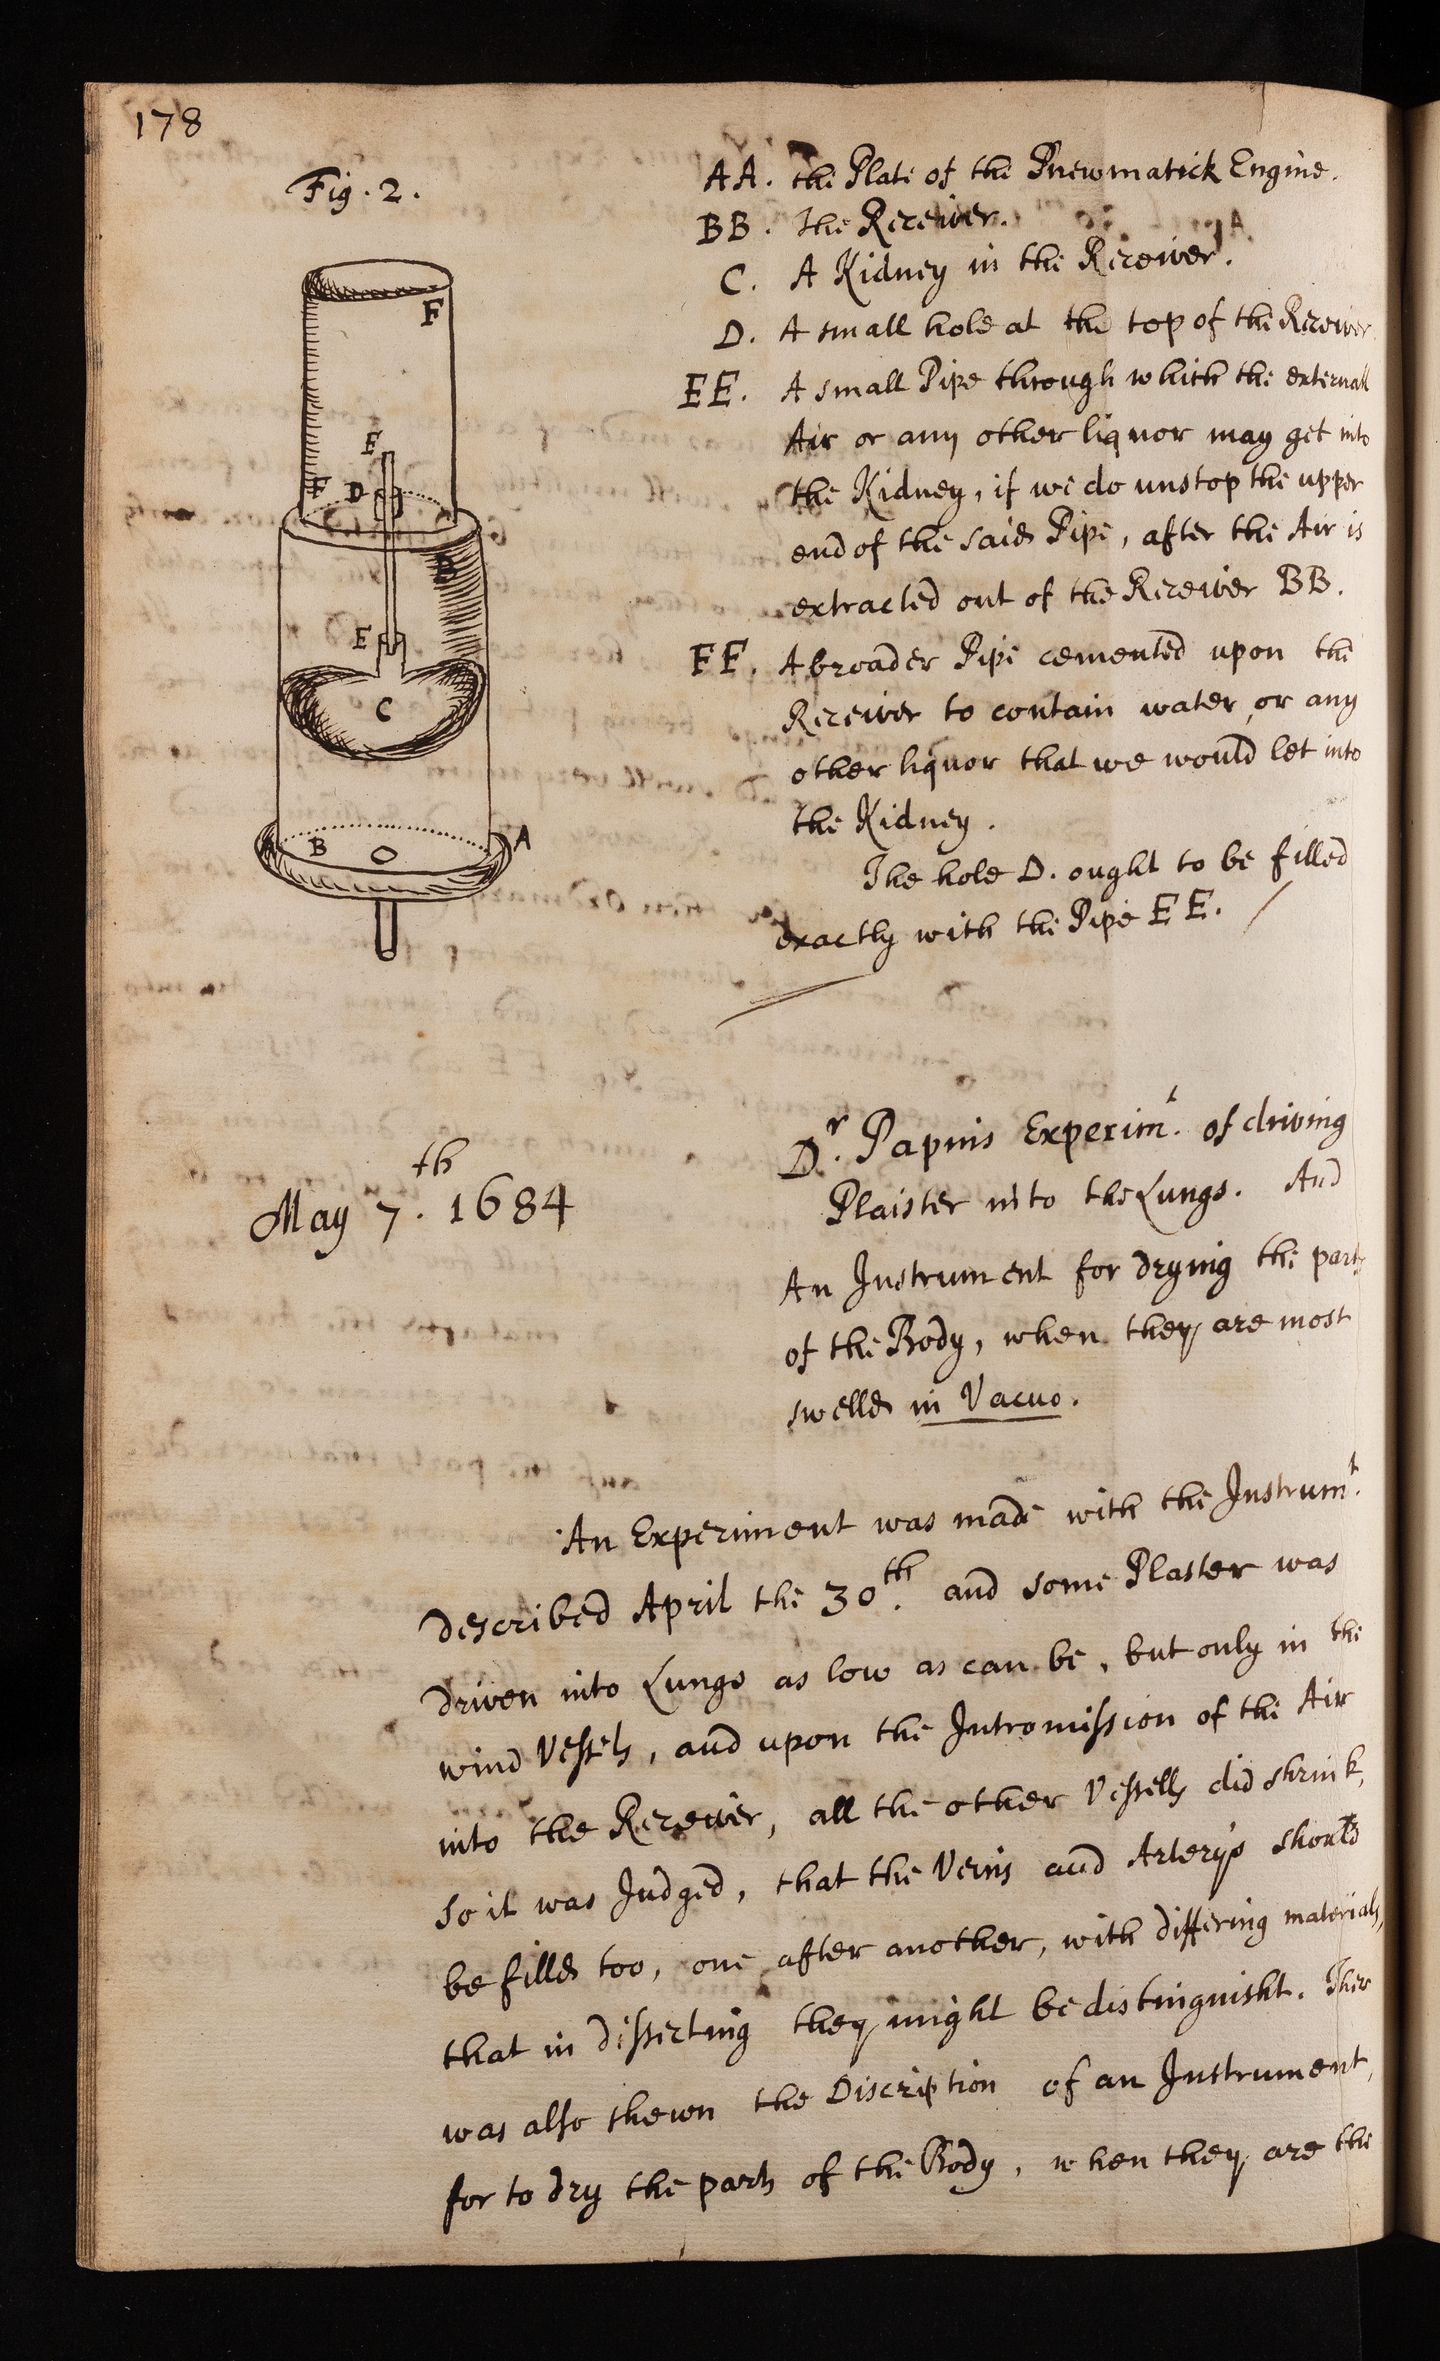 178
Fig. 2.
F
E
F D
B
E
C
B
A
A
AA. the Plate of the Pnewmatick Engine.
BB. The Receiver.
C. A Kidney in the Receiver.
D. A small hole at the top of the Receiver
EE. A small Pipe through which the externall
Air or any other liquor may get into
the Kidney, if we do unstop the upper
end of the said Pipe, after the Air is
extracted out of the Receiver BB.
FF. A broader Pipe cemented upon the
Receiver to contain water, or any
other liquor that we would let into
the Kidney.
The hole D. ought to be filled
exactly with the Pipe EE.
May 7th. 1684
Dr. Papins Experimt. of driving
Plaister into the Lungs. And
An Instrument for drying the parts
of the Body, when they are most
swelld in Vacuo.
An Experiment was made with the Instrumt.
described April the 30th. and some Plaster was
driven into Lungs as low as can be, but only in the
wind Vessels, and upon the Intromission of the Air
into the Receiver, all the other Vessells did shrink,
so it was Judged, that the Veins and Arterys should
be filld too, one after another, with differing materials,
that in dissecting they might be distinguisht. Ther
was also shewn the Discription of an Instrument,
for to dry the parts of the Body, when they are the